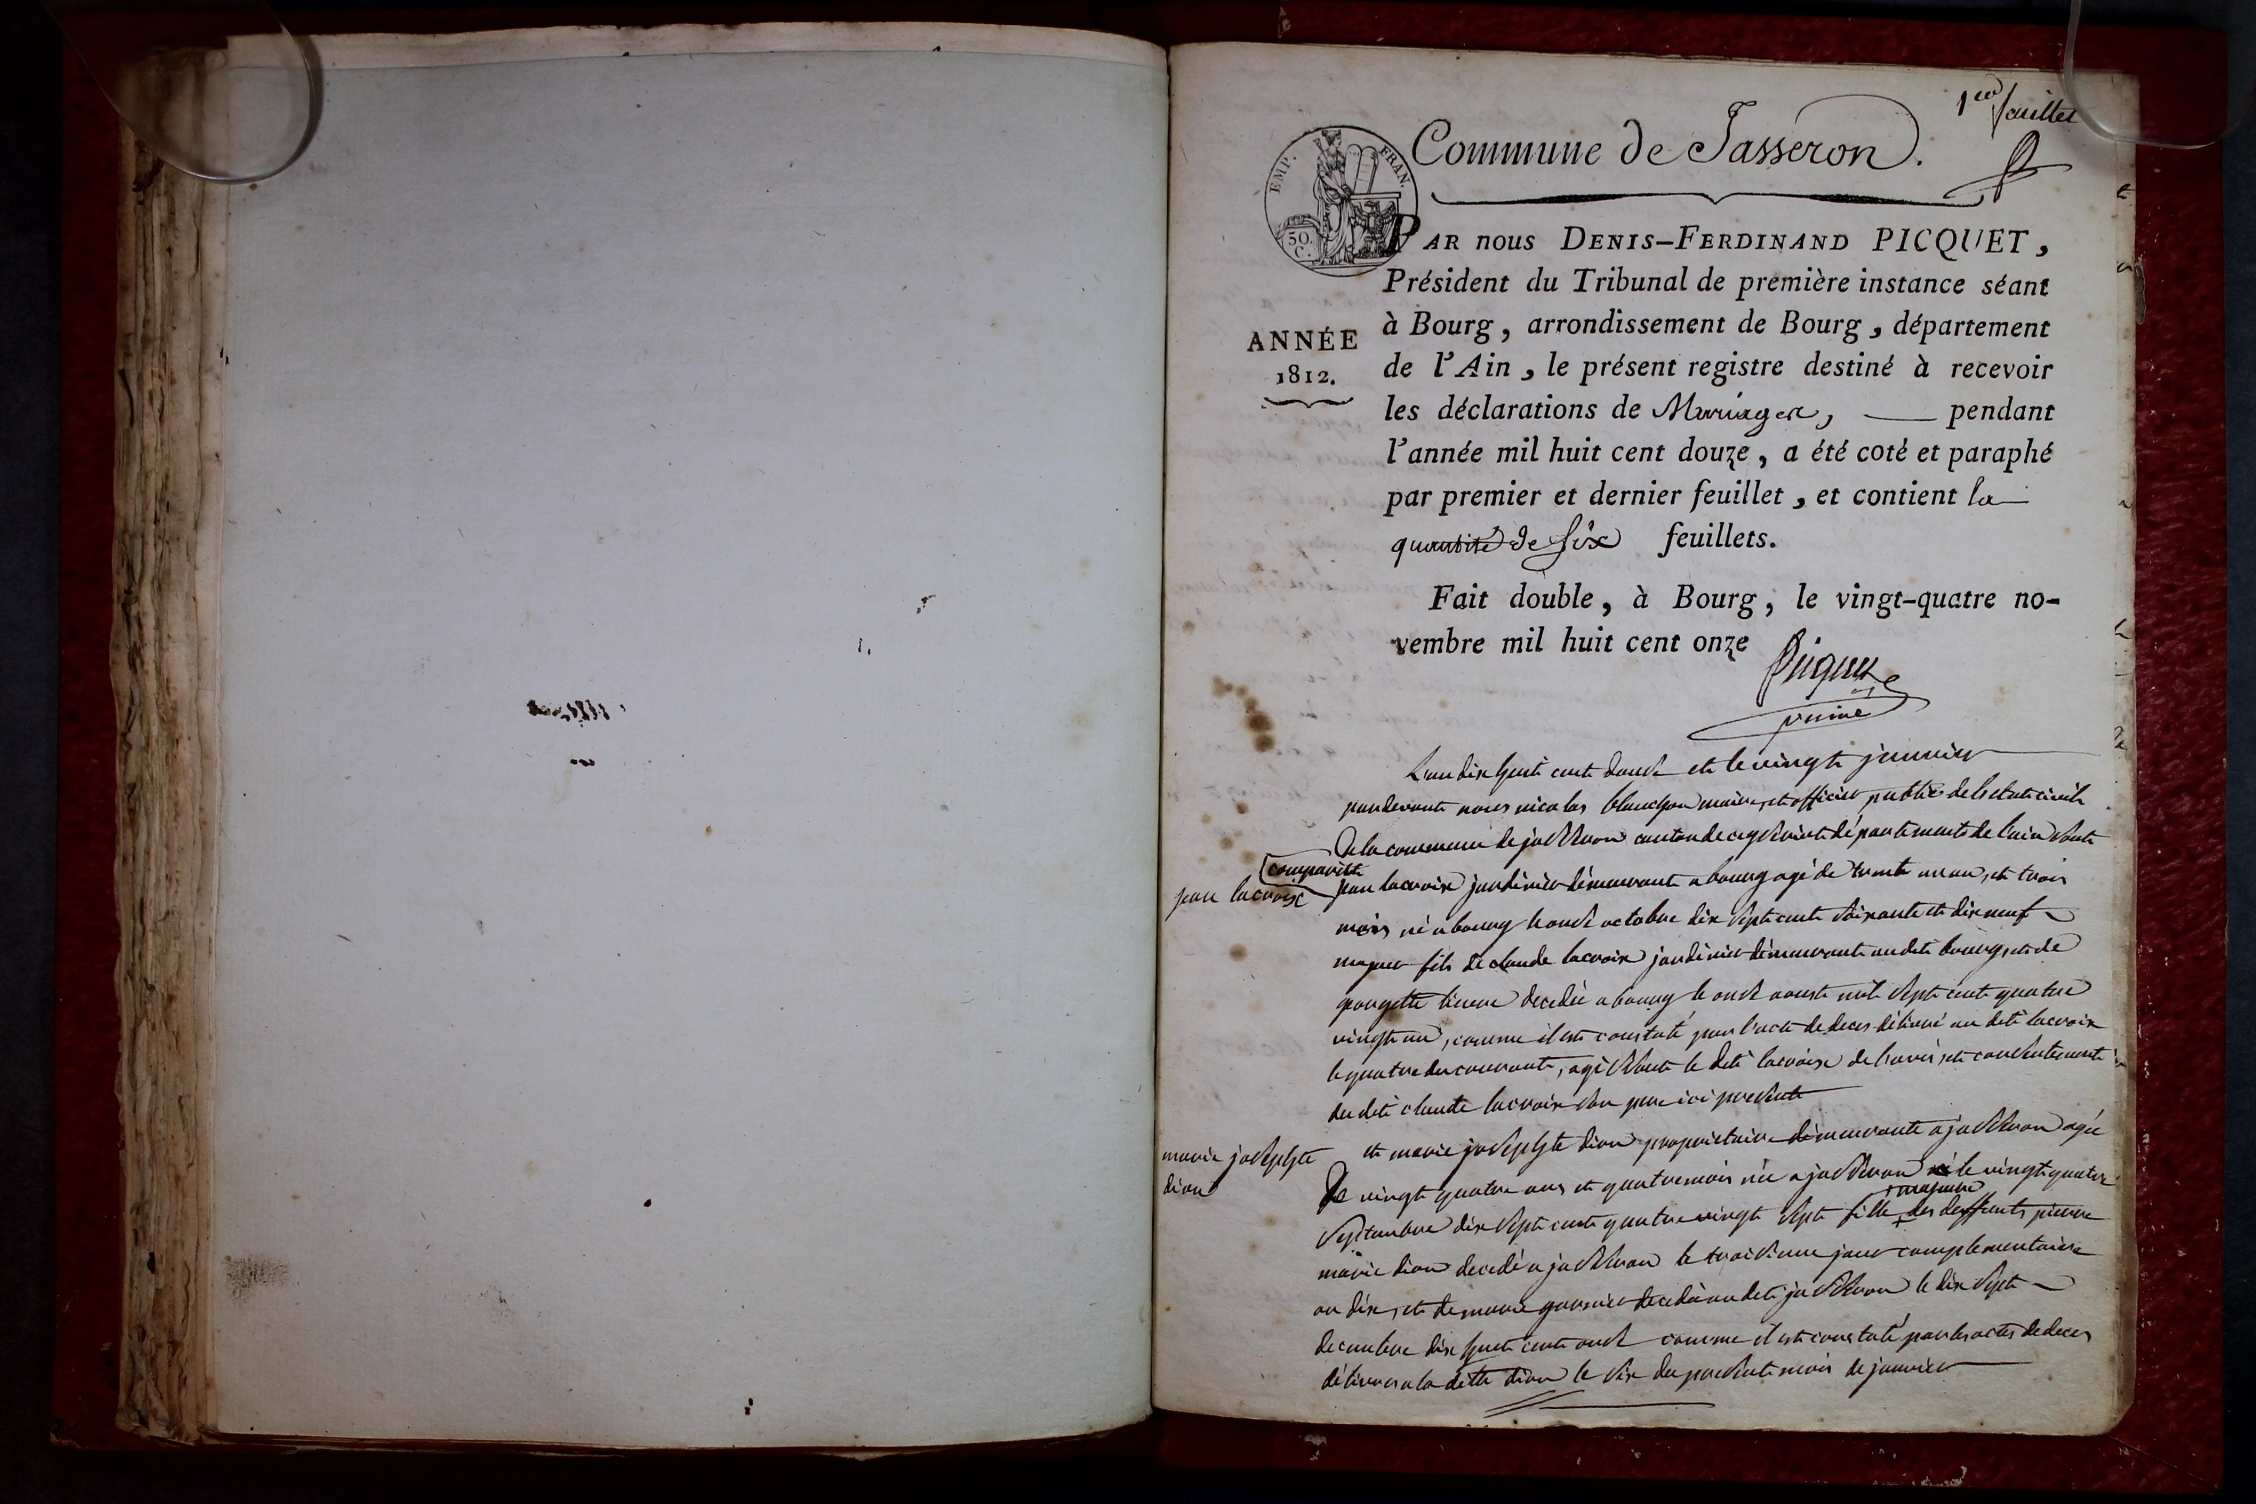 1er feuillet
Commune de Jasseron.
EMP. FRAN.
30. C.
PAR nous DENIS-FERDINAND PICQUET,
Président du Tribunal de première instance séant
à Bourg, arrondissement de Bourg, département
de l'Ain, le présent registre destiné à recevoir
les déclarations de Mariages, pendant
l'année mil huit cent douze, a été coté et paraphé
par premier et dernier feuillet, et contient la
quantité de six feuillets.
ANNÉE
1812.
Fait double, à Bourg, le vingt-quatre no-
vembre mil huit cent onze
Picquet
L'an dix huit cent douze et le vingt janvier
pardevant nous nicolas blanchon maire, et officier public de l'etat civil
de la commune de jasseron canton de ceyzeriat département de l'ain sont
comparut
jean lacroix
jean lacroix jardinier démeurant a bourg agé de trente un an, et trois
mois né a bourg le onze octobre dix sept cent soixante et dix neuf
majeur fils de claude lacroix jardinier démeurant au dit bourg, et de
decedée a bourg le onze aoust mil sept cent quatre
vingt un, comme il est constaté par l'acte de deces délivré au dit lacroix
le quatre du courant, agissant le dit lacroix de l'avis, et consentement
du dit claude lacroix son pere ici present
marie josephte
dion
et marie josephte dion propriétaire démeurante a jasseron agée
de vingt quatre ans et quatre mois née a jasseron le vingt quatre
majeure
septembre dix sept cent quatre vingt sept fille des deffunts pierre
marie dion decedé a jasseron le troisieme jour complementaire
an dix, et de marie decedée au dit jasseron le dix sept
decembre dix huit cent onze comme il est constaté par les actes de deces
délivrés a la ditte dion le six du present mois de janvier